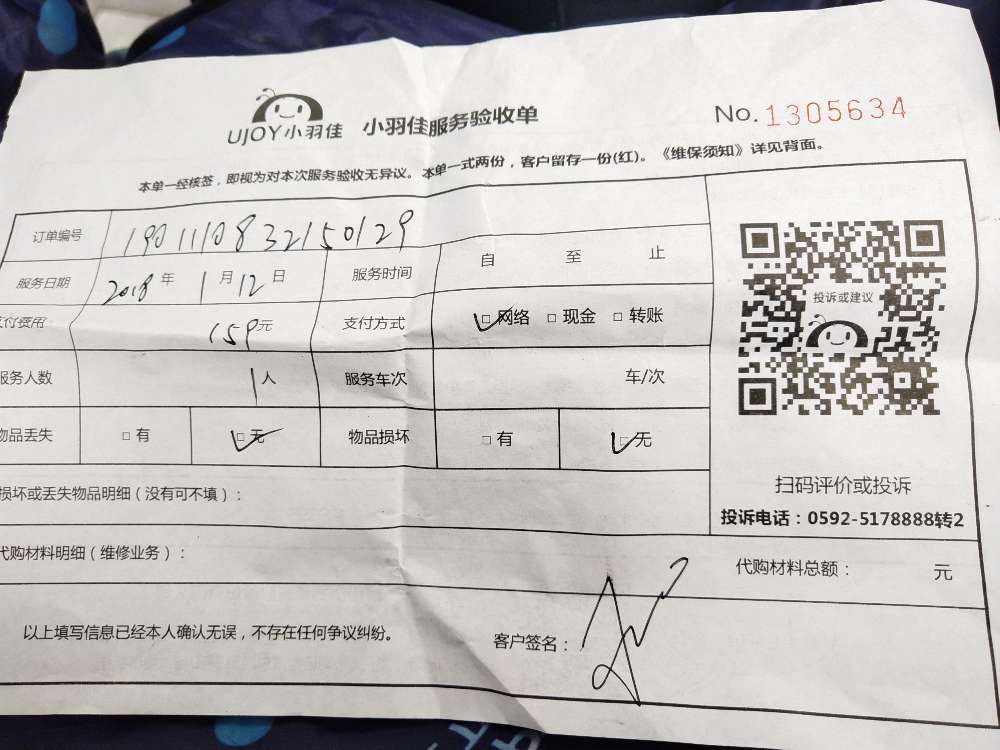 UJOY小羽佳 小羽佳服务验收单 No.1305634
本单一经核签，即视为对本次服务验收无异议。本单一式两份，客户留存一份(红)。《维保须知》详见背面。
订单编号 1901110832150129
服务日期 2018年1月12日 服务时间 自 至 止
支付费用 159元 支付方式 ☑网络 □现金 □转账
服务人数 1人 服务车次 车/次
物品丢失 □有 ☑无 物品损坏 □有 ☑无
损坏或丢失物品明细（没有可不填）：
代购材料明细（维修业务）：
代购材料总额： 元
以上填写信息已经本人确认无误，不存在任何争议纠纷。
客户签名：
投诉或建议
扫码评价或投诉
投诉电话：0592-5178888转2